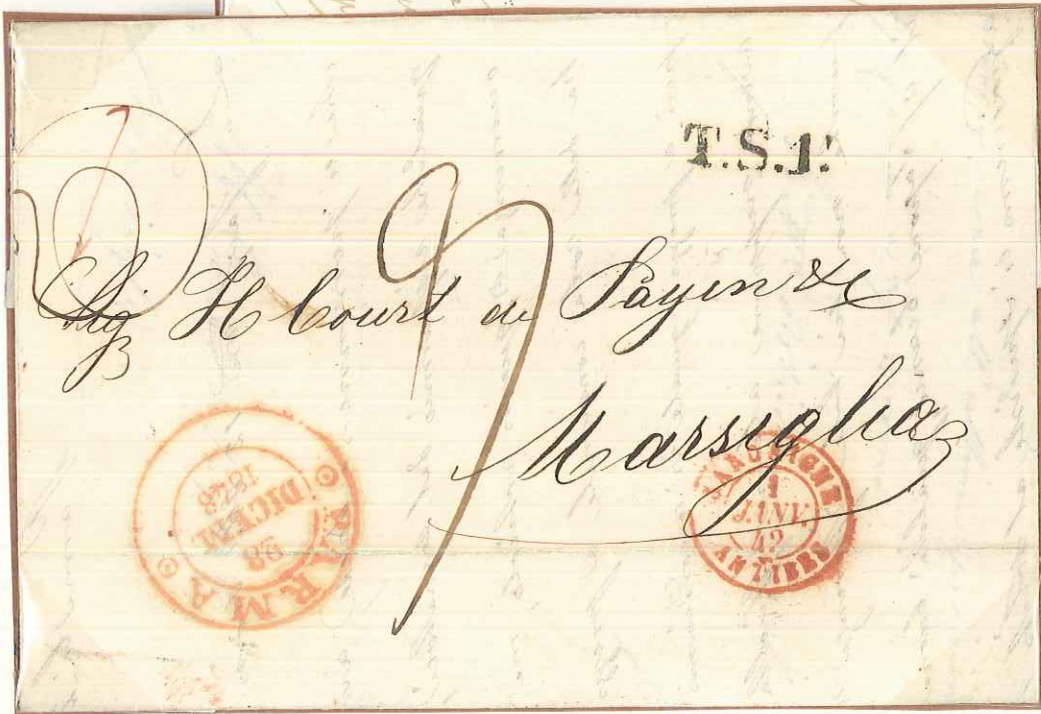 T.S.1.
Sig H Court de Payen & C
Marsiglia
PARMA
28
DICEM.
1848
SARDAIGNE
1
JANV.
49
ANTIBES